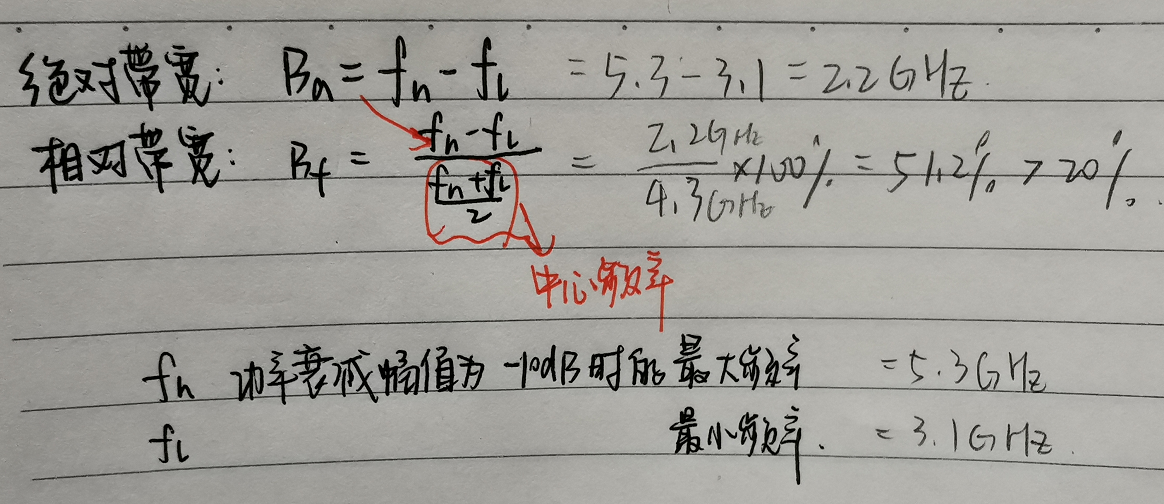 绝对带宽: Ba = fh - fl = 5.3 - 3.1 = 2.2GHz.
相对带宽: Bf = (fh - fl) / ((fh + fl) / 2) = 2.2GHz / 4.3GHz ×100% = 51.2% > 20%.
中心频率
fh 功率衰减幅值为 -10dB时的最大频率 = 5.3GHz
fl 最小频率. = 3.1GHz.